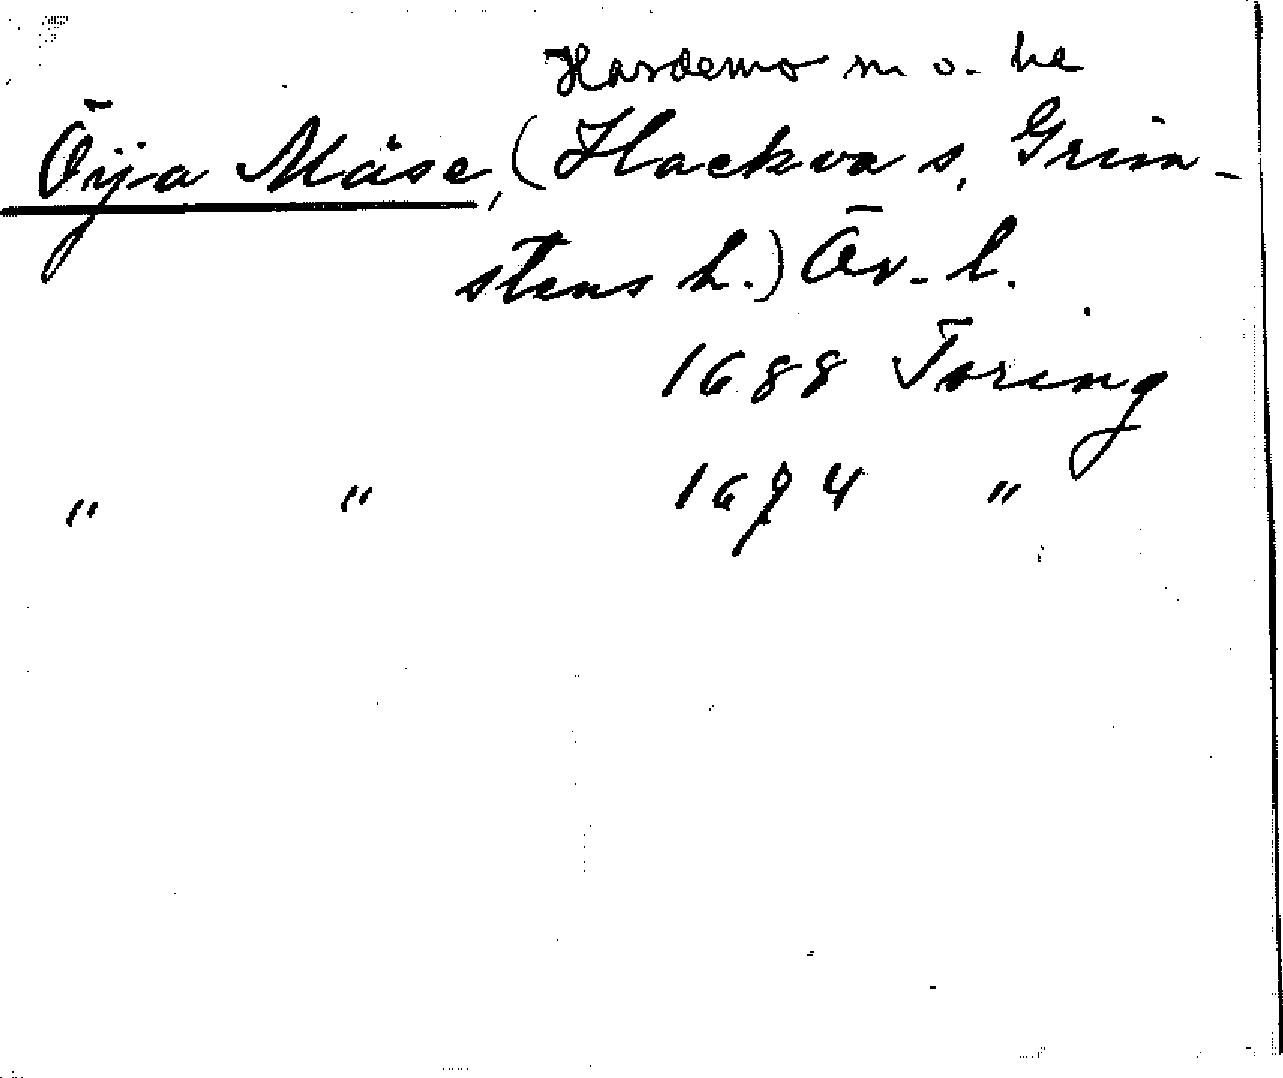 Hardemo m o. he
Öija Måse, (Hackva s, Grim-
stens h.) Ör. l.
1688 Toring
" " 1694 "